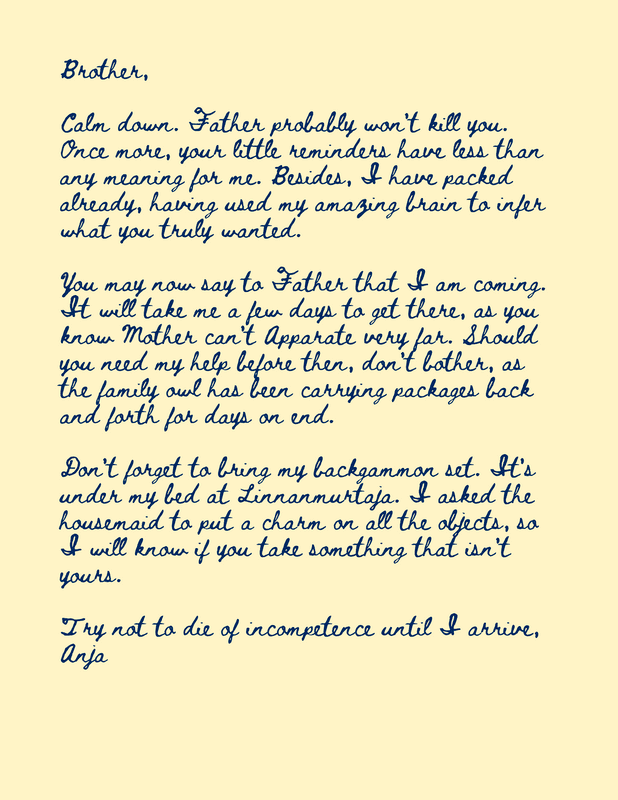 Brother,
Calm down. Father probably won't kill you.
Once more, your little reminders have less than
any meaning for me. Besides, I have packed
already, having used my amazing brain to infer
what you truly wanted.
You may now say to Father that I am coming.
It will take me a few days to get there, as you
know Mother can't Apparate very far. Should
you need my help before then, don't bother, as
the family owl has been carrying packages back
and forth for days on end.
Don't forget to bring my backgammon set. It's
under my bed at Linnanmurtaja. I asked the
housemaid to put a charm on all the objects, so
I will know if you take something that isn't
yours.
Try not to die of incompetence until I arrive,
Anja